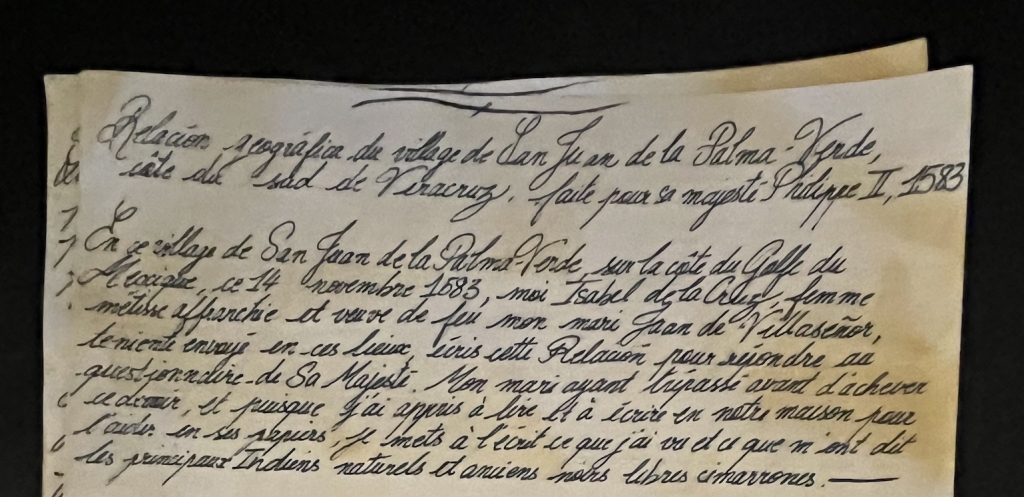 Relación geográfica du village de San Juan de la Palma-Verde,
côte du sud de Veracruz, faite pour sa majesté Philippe II, 1583
En ce village de San Juan de la Palma-Verde, sur la côte du Golfe du
Mexique, ce 14 novembre 1583, moi Isabel de la Cruz, femme
métisse affranchie et veuve de feu mon mari Juan de Villaseñor,
teniente envoyé en ces lieux, écris cette Relación pour répondre au
questionnaire de Sa Majesté. Mon mari ayant trépassé avant d'achever
ce devoir, et puisque j'ai appris à lire et à écrire en notre maison pour
l'aider en ses papiers, je mets à l'écrit ce que j'ai vu et ce que m'ont dit
les principaux Indiens naturels et anciens noirs libres cimarrones.